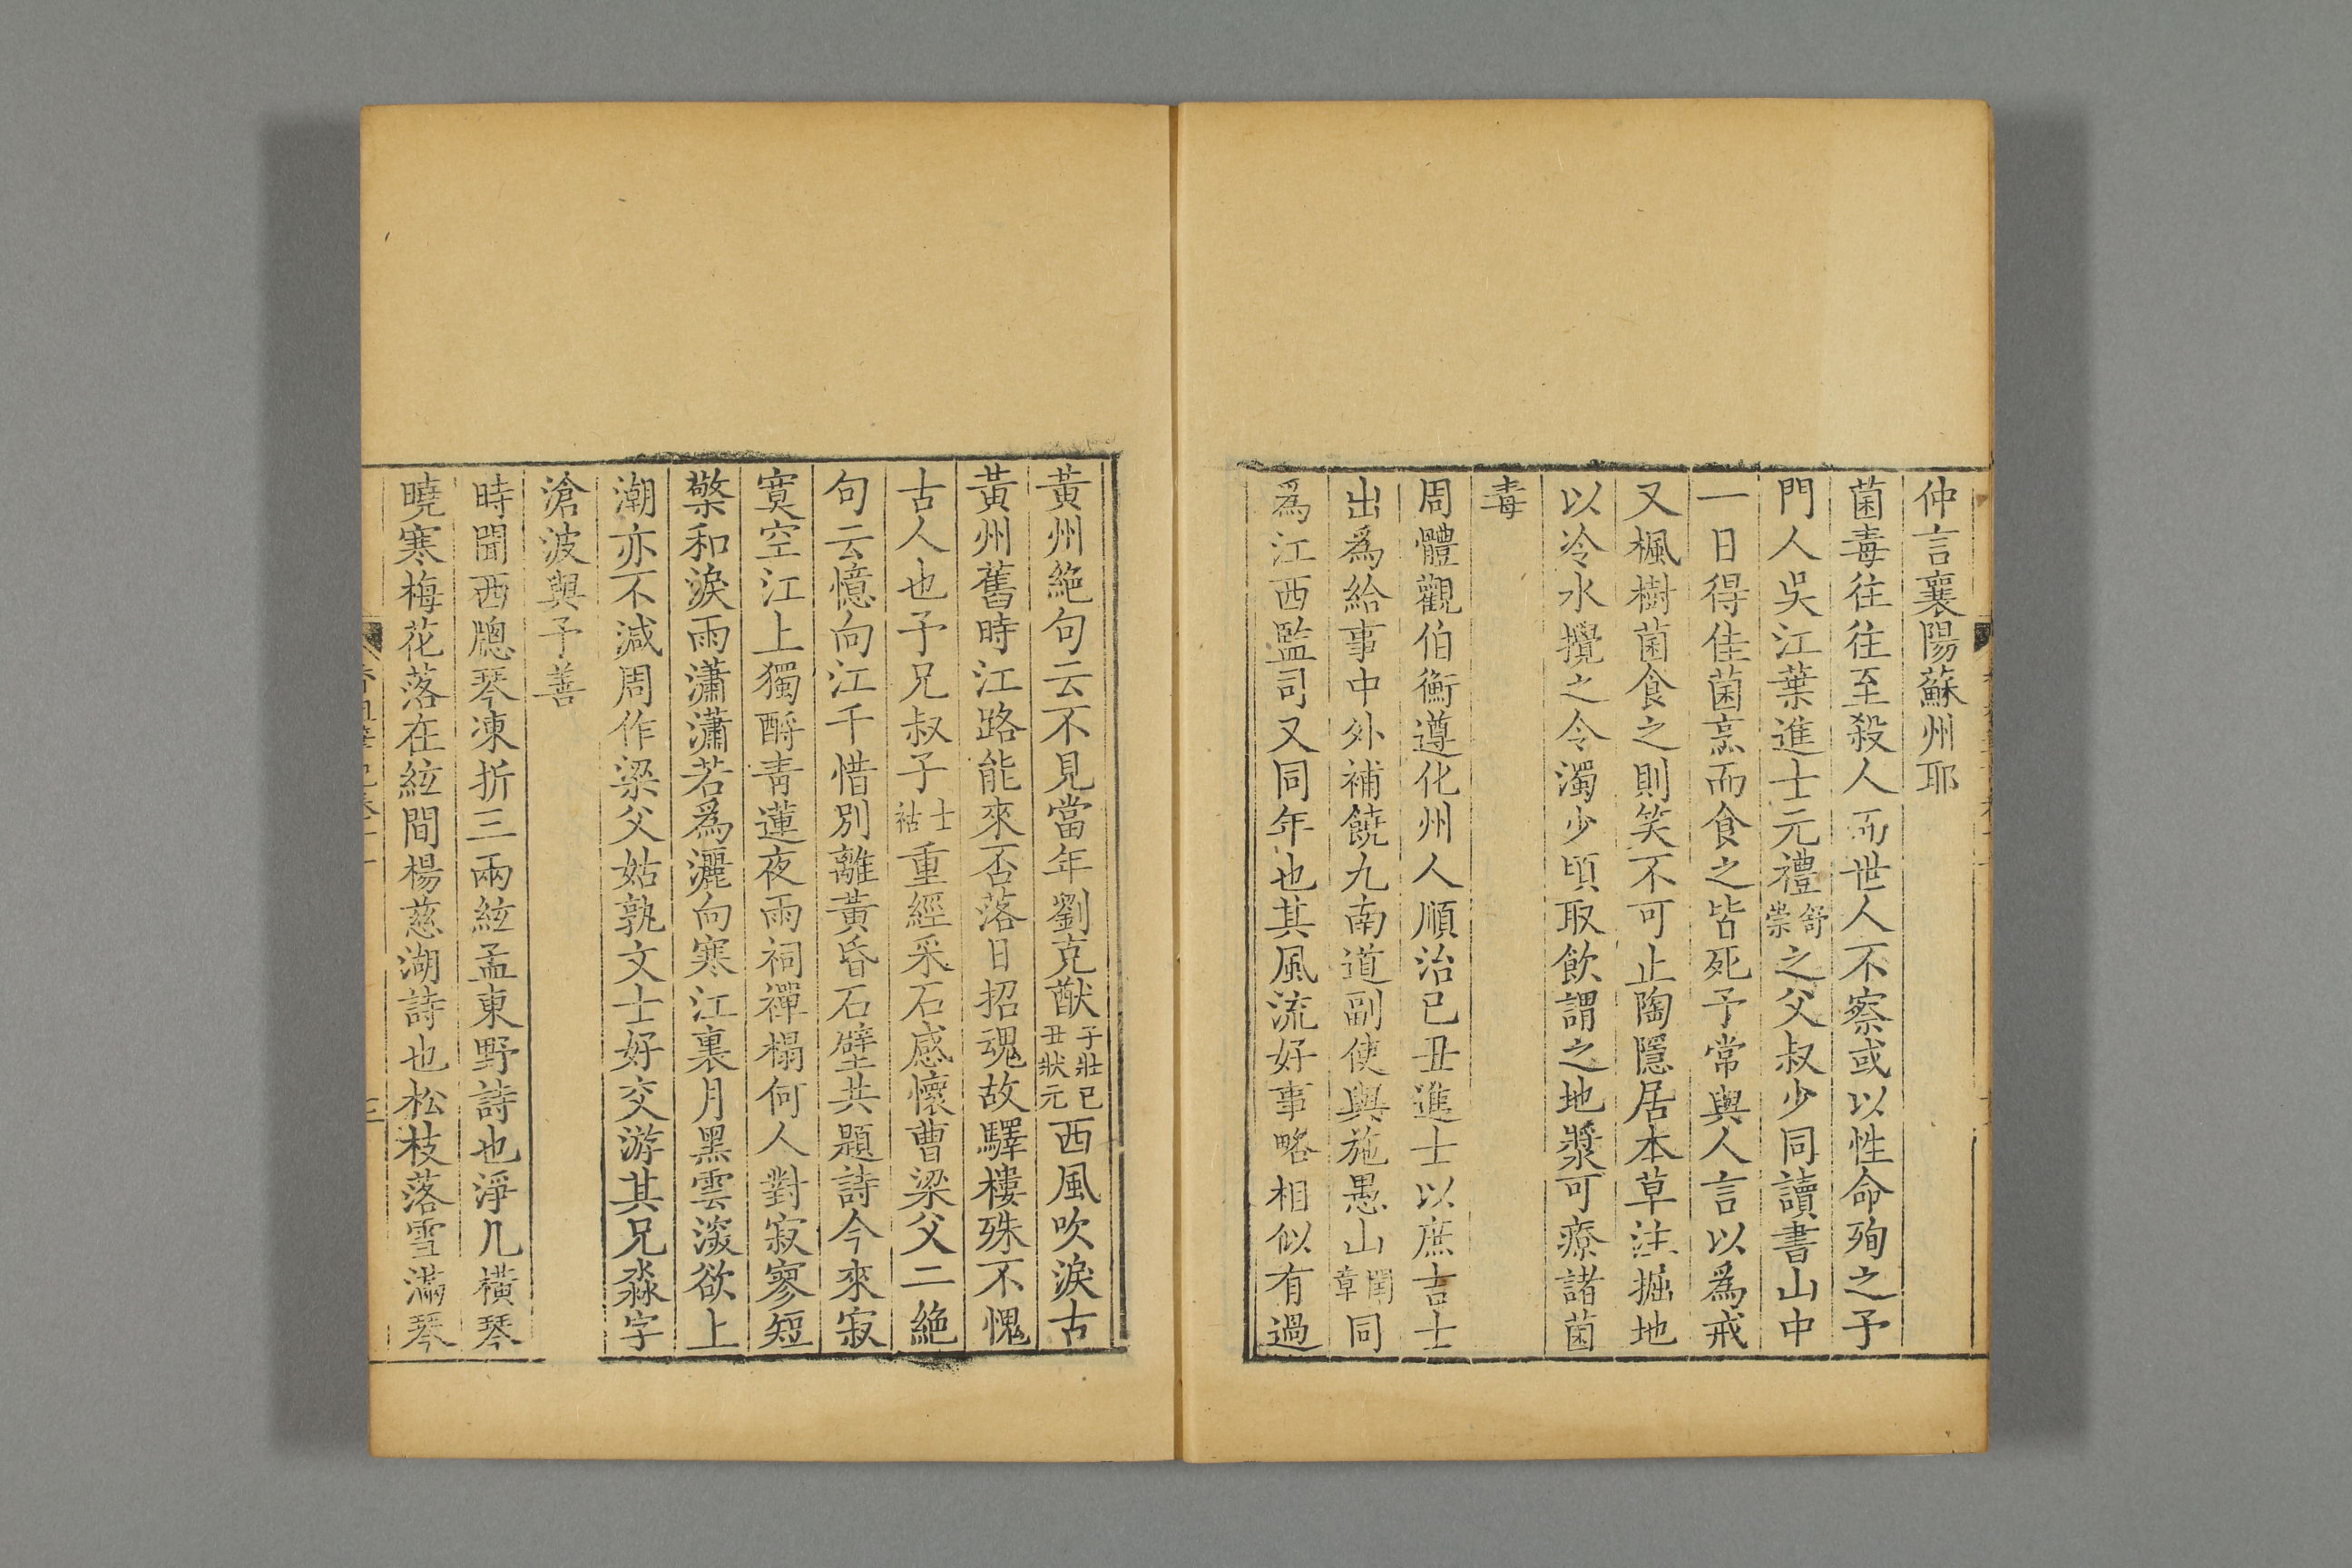 仲言襄陽蘇州耶
菌毒往往至殺人而世人不察或以性命殉之予
門人吳江葉進士元禮舒崇之父叔少同讀書山中
一日得佳菌烹而食之皆死予常與人言以爲戒
又楓樹菌食之則笑不可止陶隱居本草注掘地
以冷水攪之令濁少頃取飲謂之地漿可療諸菌
毒
周體觀伯衡遵化州人順治己丑進士以庶吉士
出爲給事中外補饒九南道副使與施愚山閏章同
爲江西監司又同年也其風流好事略相似有過
黃州絶句云不見當年劉克猷子壯己丑狀元西風吹淚古
黃州舊時江路能來否落日招魂故驛樓殊不愧
古人也予兄叔子士祜重經采石感懷曹梁父二絶
句云憶向江干惜別離黃昏石壁共題詩今來寂
寞空江上獨酹青蓮夜雨祠禪榻何人對寂寥短
檠和淚雨瀟瀟若爲灑向寒江裏月黑雲深欲上
潮亦不減周作梁父姑孰文士好交游其兄淼字
滄波與予善
時聞西牕琴凍折三兩絃孟東野詩也淨几橫琴
曉寒梅花落在絃間楊慈湖詩也松枝落雪滿琴